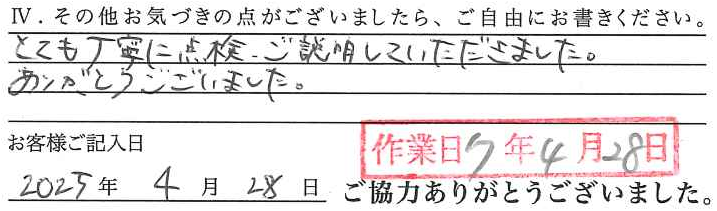 Ⅳ．その他お気づきの点がございましたら、ご自由にお書きください。
とても丁寧に点検・ご説明していただきました。
ありがとうございました。
お客様ご記入日
作業日7年4月28日
2025年 4月 28日
ご協力ありがとうございました。